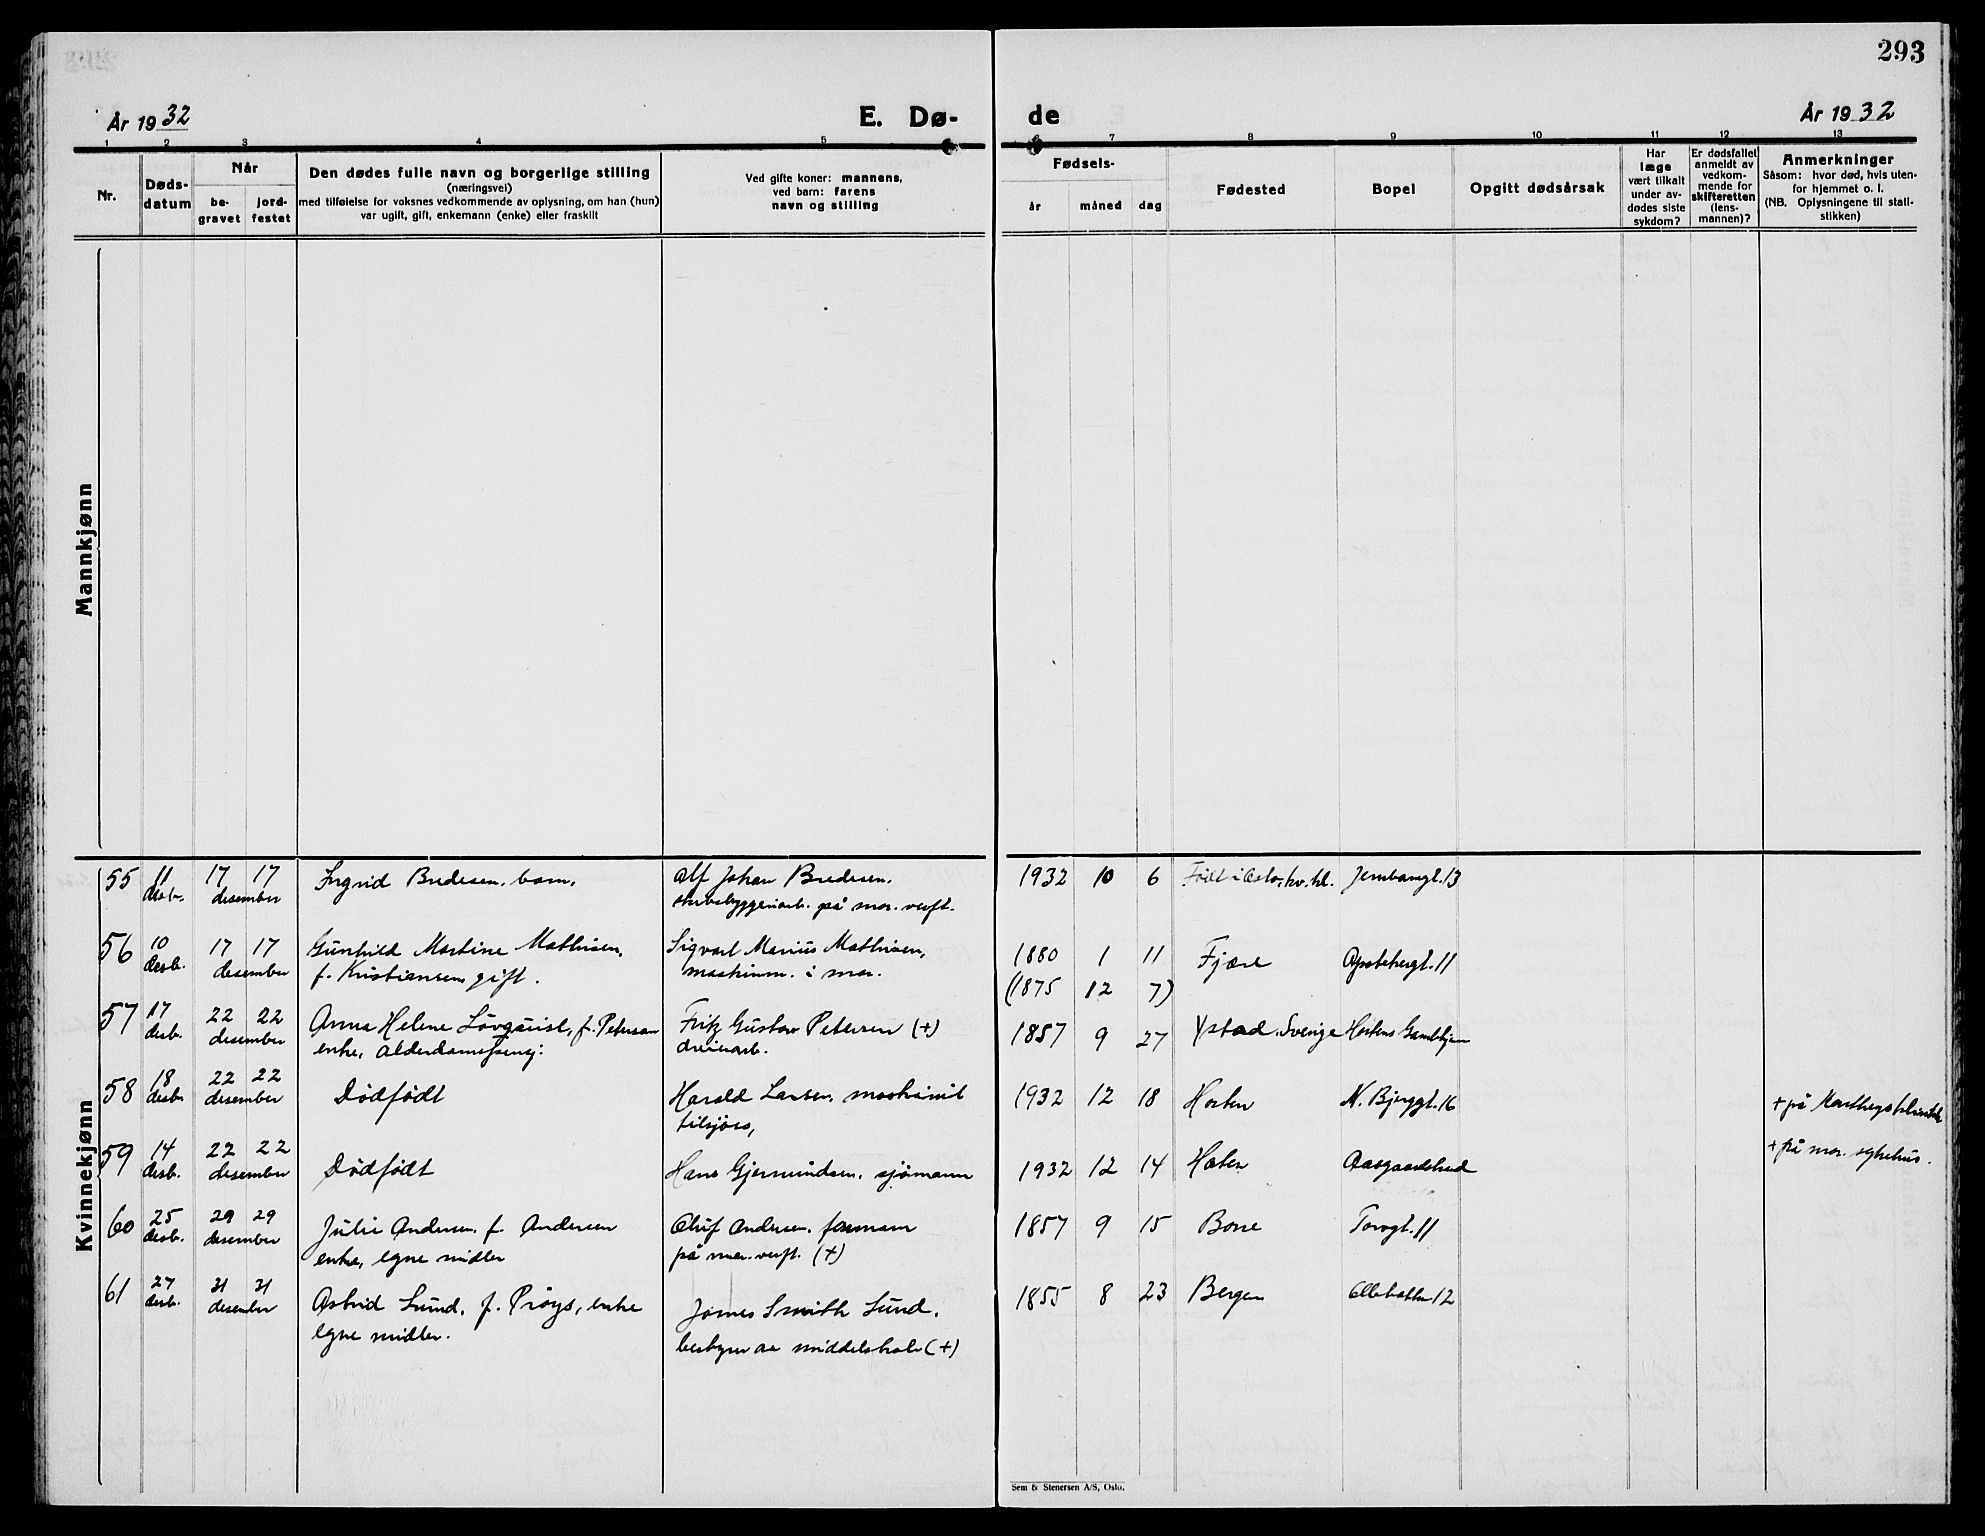 293
År 1932
E. Dø-
de
År 1932
1 2 3 4 5 6 7 8 9 10 11 12 13
Nr.
Døds-
datum
Når
be-
gravet
jord-
festet
Den dødes fulle navn og borgerlige stilling
(næringsvei)
med tilføielse for voksnes vedkommende av oplysning, om han (hun)
var ugift, gift, enkemann (enke) eller fraskilt
Ved gifte koner: mannens,
ved barn: farens
navn og stilling
Fødsels-
år måned dag
Fødested
Bopel
Opgitt dødsårsak
Har
læge
vært tilkalt
under av-
dødes siste
sykdom?
Er dødsfallet
anmeldt av
vedkom-
mende for
skifteretten
(lens-
mannen)?
Anmerkninger
Såsom: hvor død, hvis uten-
for hjemmet o. l.
(NB. Oplysningene til stati-
stikken)
Mannkjønn
Kvinnekjønn
55 11 17 17 Ingrid Bredesen, barn. Alf Johan Bredesen, 1932 10 6 Født i Oslo, kv. kl. Jernbanegt. 13
desb. desember på mar. verft.
56 10 17 17 Gunhild Martine Mathisen, Sigvart Marius Mathisen, 1880 1 11 Fjære Apotekergt. 11
desb. desember f. Kristiansen, gift. maskinm. i mar.
(1875 12 7)
57 17 22 22 Anna Helene Lövquist, f. Peterson Fritz Gustav Petersen (+) 1857 9 27 Ystad, Sverige Hortens Gamlehjem
desb. desember enke, dreiearb.
58 18 22 22 Dødfödt Harald Larsen, maskinist 1932 12 18 Horten N. Bjerggt. 16
desb. desember tilsjøss,
+ på
59 14 22 22 Dødfödt Hans Gjermundsen, sjömann 1932 12 14 Horten Aasgaardstrand
desb. desember
+ på mar. sykehus.
60 25 29 29 Julie Andersen, f. Andersen Oluf Andersen, formann 1857 9 15 Borre Torvgt. 11
desb. desember enke, egne midler på mar. verft. (+)
61 27 31 31 Astrid Lund, f. Pröys, enke James Smith Lund, 1855 8 23 Bergen Ollebakken 12
desb. desember egne midler. bestyrer av middelskole (+)
Sem & Stenersen A/S, Oslo.